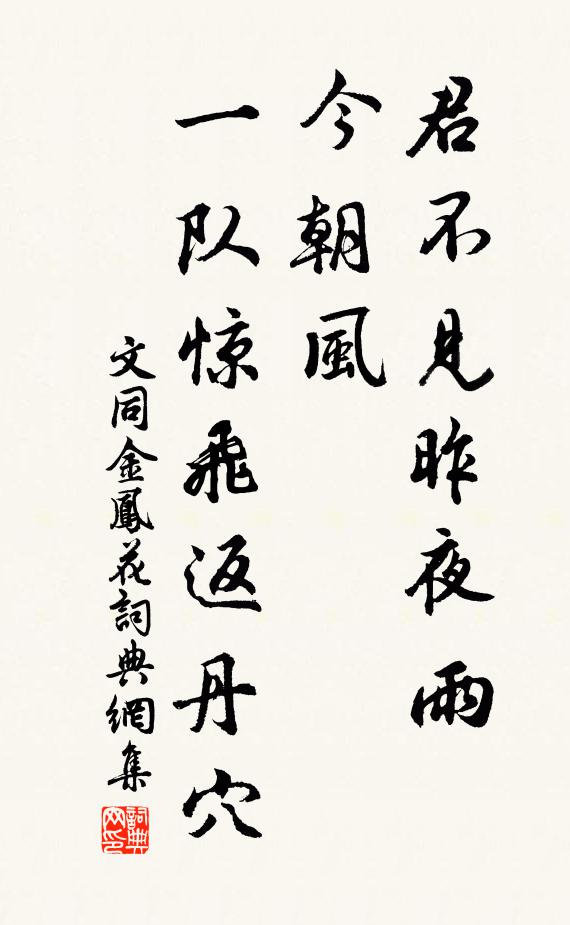 君不見昨夜雨
今朝風
一队惊飛返丹穴
文同金鳳花詞典網集
詞典网印